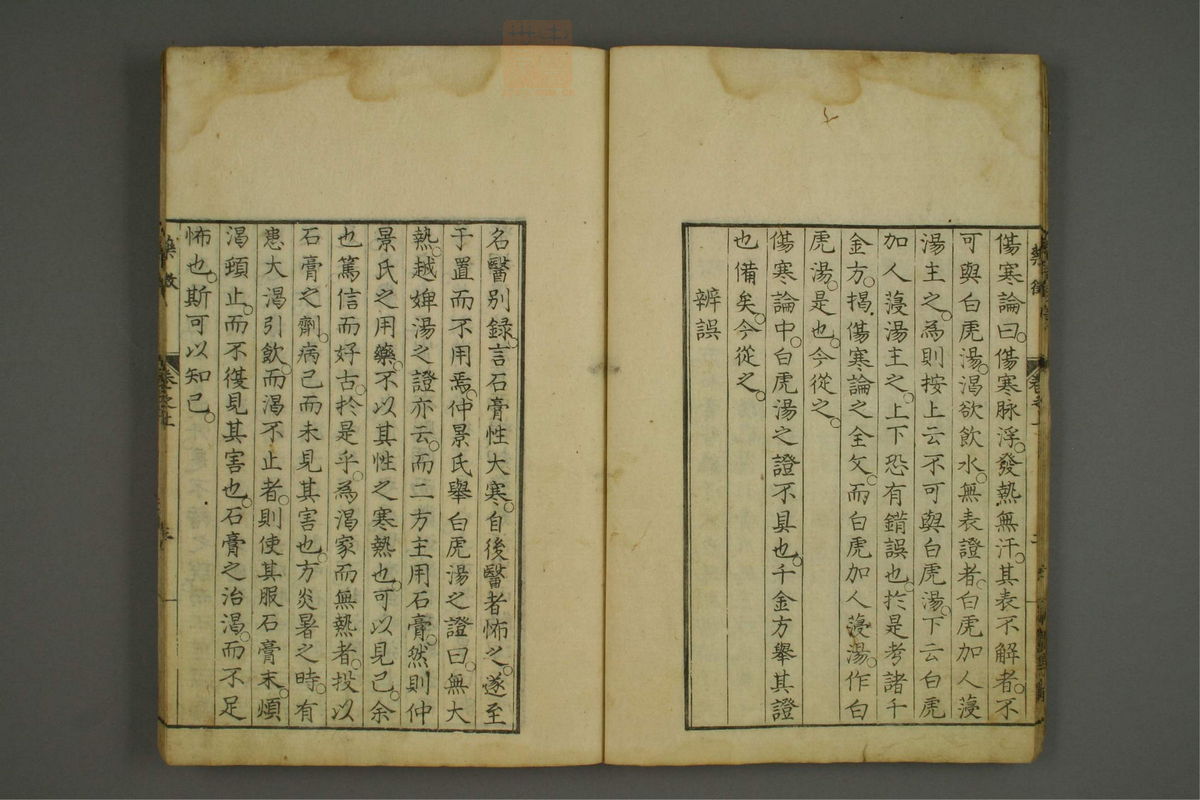 傷寒論曰。傷寒脉浮。發熱無汗。其表不解者。不
可與白虎湯。渴欲飲水。無表證者。白虎加人蓡
湯主之。為則按上云不可與白虎湯。下云白虎
加人蓡湯主之。上下恐有錯誤也。於是考諸千
金方。揭傷寒論之全攵。而白虎加人蓡湯。作白
虎湯。是也。今從之。
傷寒論中。白虎湯之證不具也。千金方舉其證
也備矣。今從之。
辨誤
名醫別錄。言石膏性大寒。自後醫者怖之。遂至
于置而不用焉。仲景氏舉白虎湯之證曰。無大
熱。越婢湯之證亦云。而二方主用石膏。然則仲
景氏之用藥。不以其性之寒熱也。可以見已。余
也篤信而好古。於是乎。為渴家而無熱者。投以
石膏之劑。病已而未見其害也。方炎暑之時。有
患大渴引飲。而渴不止者。則使其服石膏末。煩
渴頓止。而不復見其害也。石膏之治渴。而不足
怖也。斯可以知已。